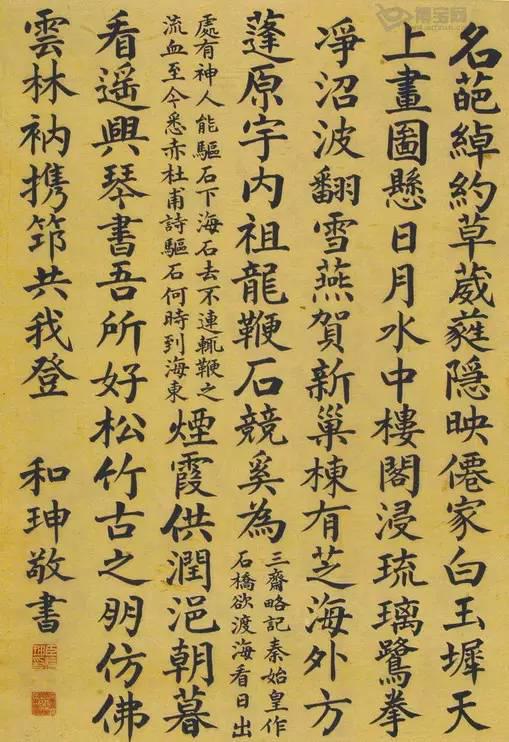 名葩綽約草葳蕤隱映僊家白玉墀天
上畫圖懸日月水中樓閣浸琉璃鷺拳
凈沼波翻雪燕賀新巢棟有芝海外方
蓬原宇内祖龍鞭石競奚為
三齋略記秦始皇作
石橋欲渡海看日出
處有神人能驅石下海石去不連輒鞭之
流血至今悉赤杜甫詩驅石何時到海東
煙霞供潤浥朝暮
看遙興琴書吾所好松竹古之朋仿佛
雲林衲携筇共我登
和珅敬書
博宝网